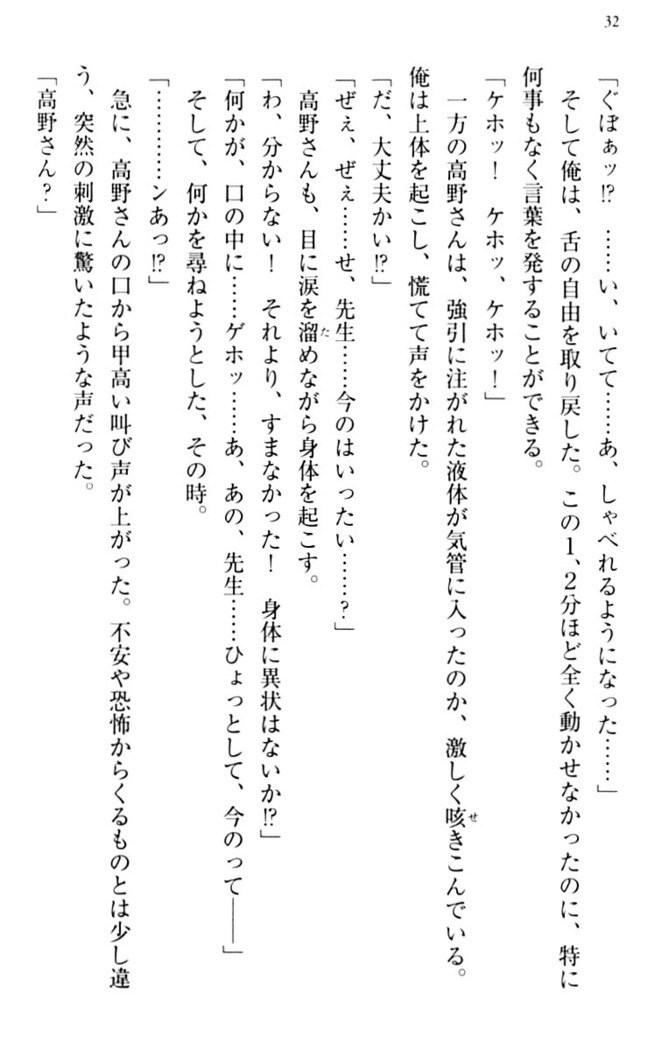 32
「ぐぽぁッ!? ……い、いてて……あ、しゃべれるようになった……」
そして俺は、舌の自由を取り戻した。この1、2分ほど全く動かせなかったのに、特に
何事もなく言葉を発することができる。
「ケホッ! ケホッ、ケホッ!」
一方の高野さんは、強引に注がれた液体が気管に入ったのか、激しく咳きこんでいる。
俺は上体を起こし、慌てて声をかけた。
「だ、大丈夫かい!?」
「ぜぇ、ぜぇ……せ、先生……今のはいったい……?」
高野さんも、目に涙を溜めながら身体を起こす。
「わ、分からない! それより、すまなかった! 身体に異状はないか!?」
「何かが、口の中に……ゲホッ……あ、あの、先生……ひょっとして、今のって――」
そして、何かを尋ねようとした、その時。
「…………ンあっ!?」
急に、高野さんの口から甲高い叫び声が上がった。不安や恐怖からくるものとは少し違
う、突然の刺激に驚いたような声だった。
「高野さん?」